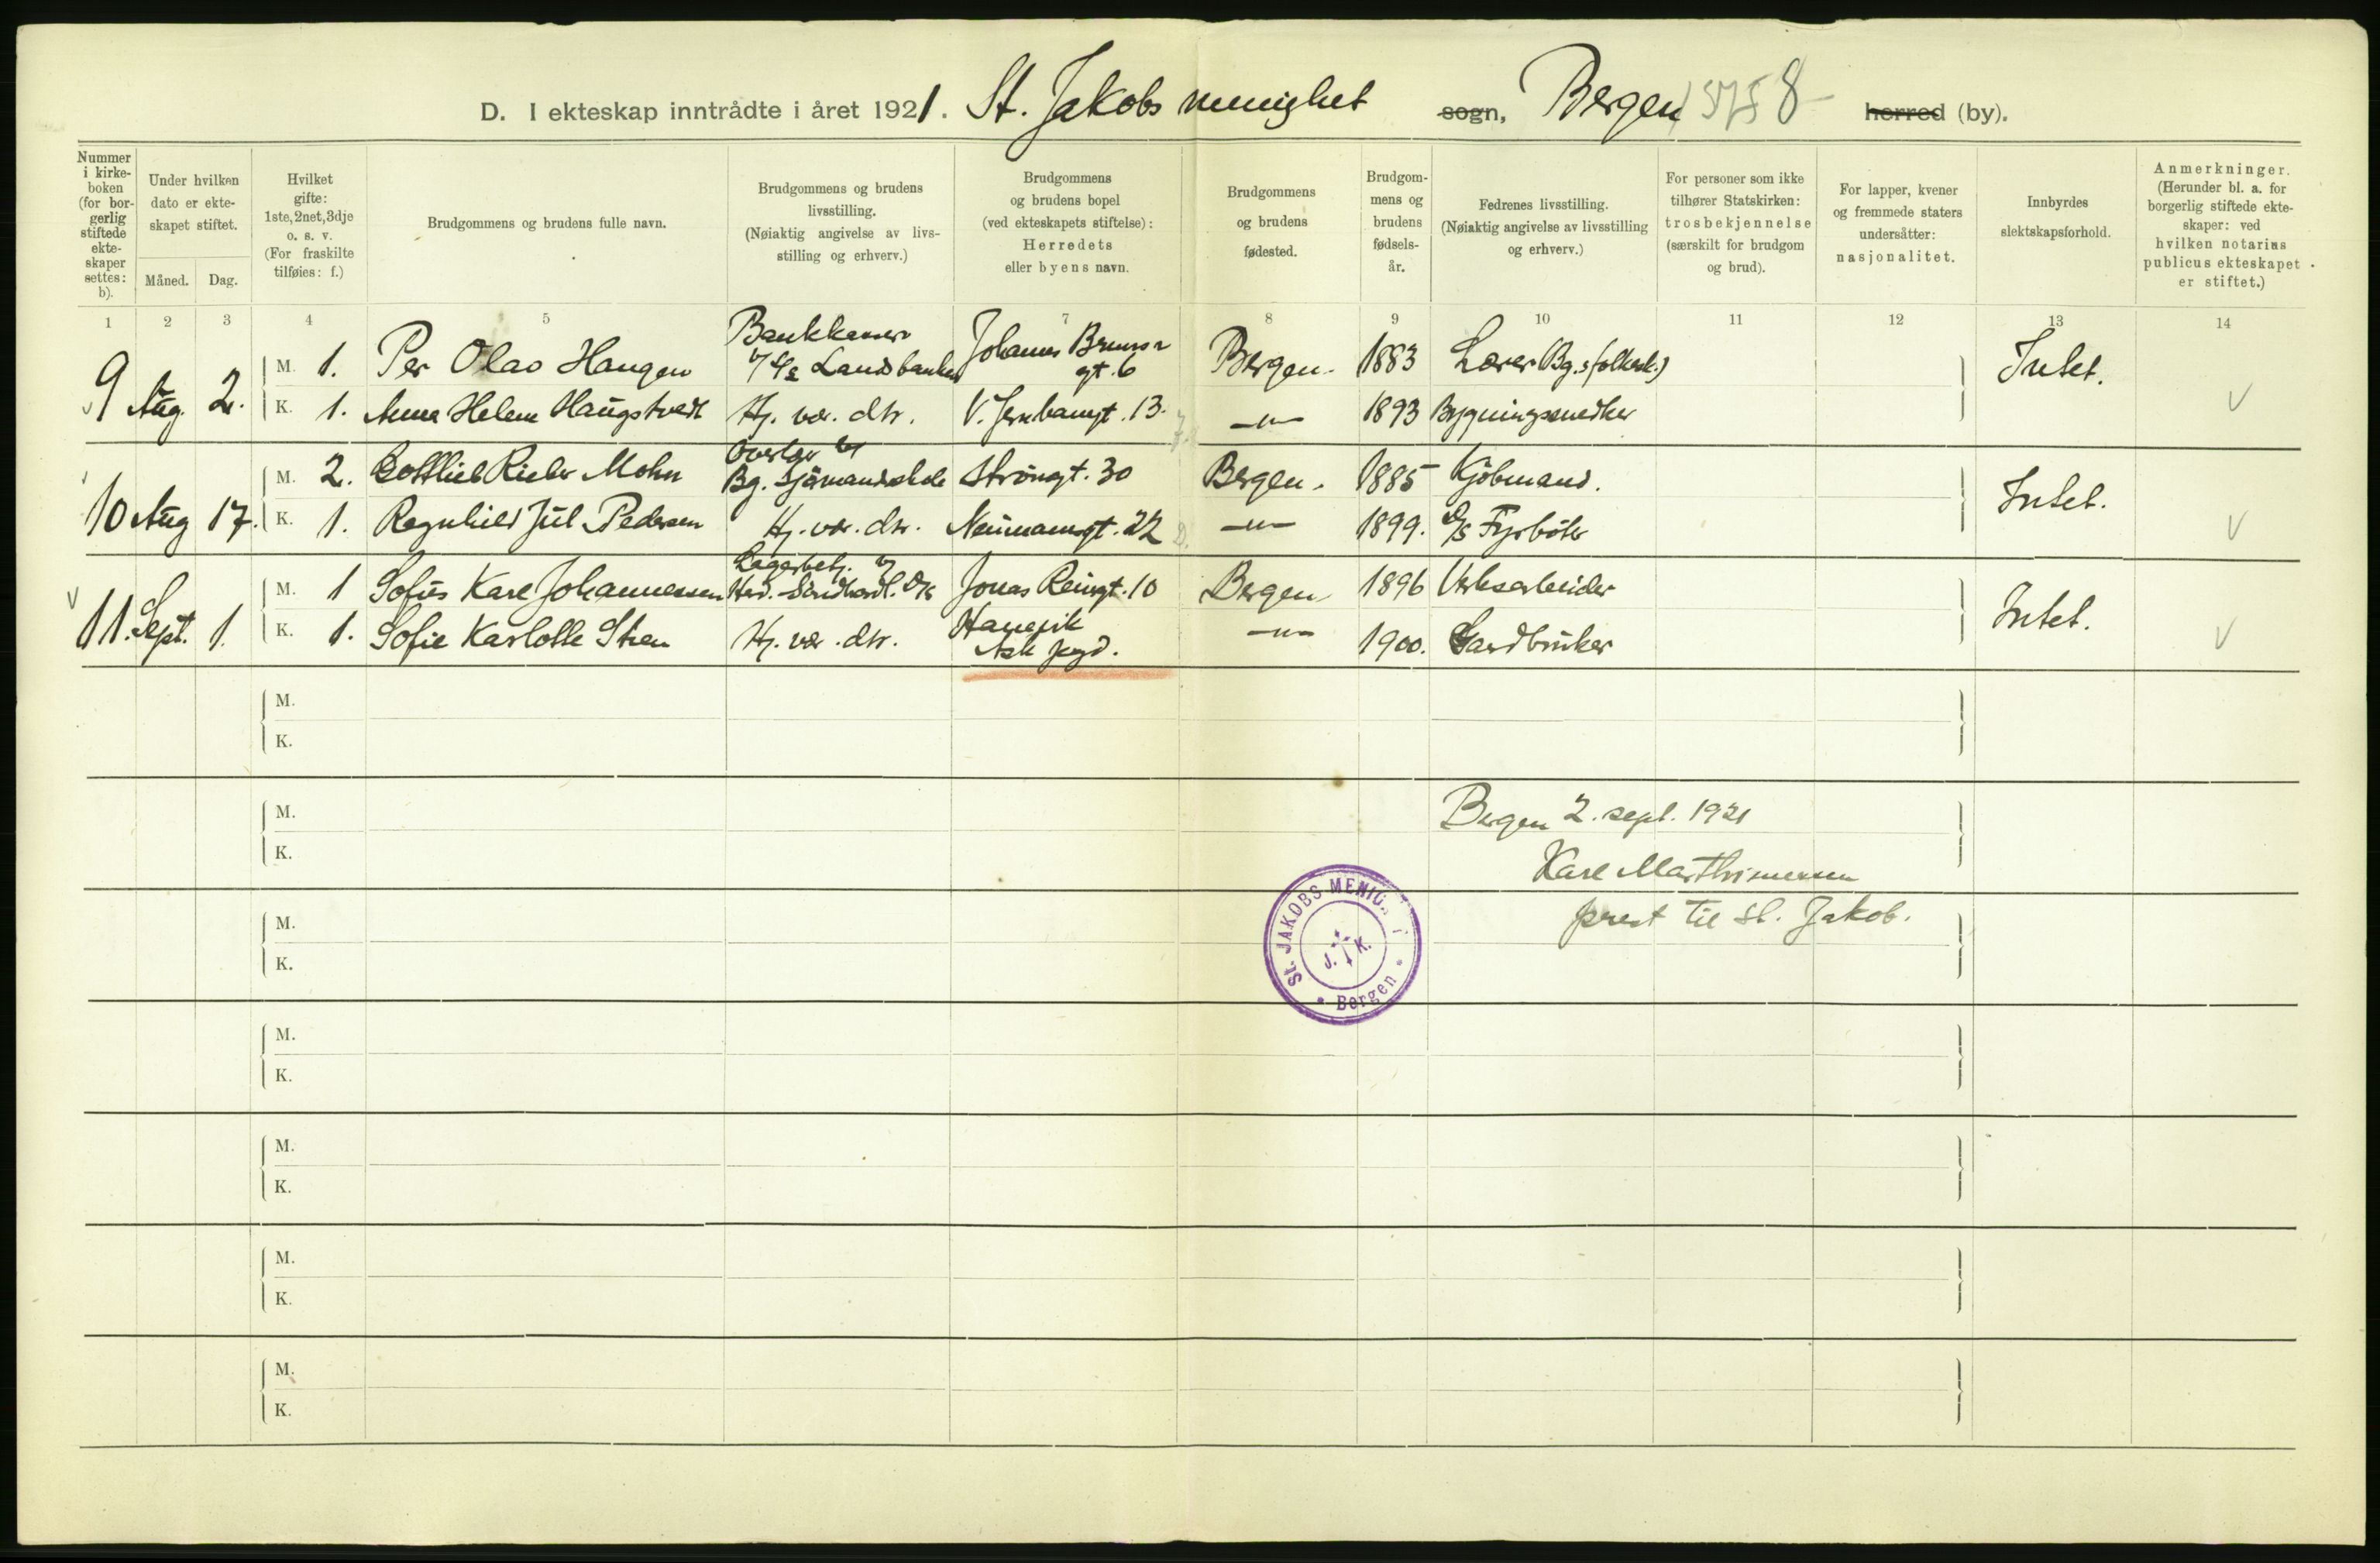 D. I ekteskap inntrådte i året 1921. St. Jakobs menighet sogn, Bergen 8 herred (by).
Nummer i kirkeboken (for borgerlig stiftede ekteskaper settes: b).
Under hvilken dato er ekteskapet stiftet.
Måned. Dag.
Hvilket gifte: 1ste, 2net, 3dje o. s. v. (For fraskilte tilføies: f.)
Brudgommens og brudens fulle navn.
Brudgommens og brudens livsstilling. (Nøiaktig angivelse av livsstilling og erhverv.)
Brudgommens og brudens bopel (ved ekteskapets stiftelse): Herredets eller byens navn.
Brudgommens og brudens fødested.
Brudgommens og brudens fødselsår.
Fedrenes livsstilling. (Nøiaktig angivelse av livsstilling og erhverv.)
For personer som ikke tilhører Statskirken: trosbekjennelse (særskilt for brudgom og brud).
For lapper, kvener og fremmede staters undersåtter: nasjonalitet.
Innbyrdes slektskapsforhold.
Anmerkninger. (Herunder bl. a. for borgerlig stiftede ekteskaper: ved hvilken notarius publicus ekteskapet er stiftet.)
1 2 3 4 5 7 8 9 10 11 12 13 14
9 Aug. 2. M. 1. Per Olao Haugen Landsbanken Johannes Bruns gt. 6 Bergen. 1883 Lærer (Bg.s folkesk.) Intet.
K. 1. Anna Helene Haugstvedt Hj. vær. dtr. V. Jernbanegt. 13. —"— 1893 Bygningssnedker
10 Aug 17. M. 2. Gottlieb Rieber Mohn Bg. Sjömandsskole Strömgt. 30 Bergen. 1885 Kjöbmand. Intet.
K. 1. Ragnhild Jul. Pedersen Hj. vær. dtr. Neumannsgt. 22 —"— 1899. D/S Fyrböter
11. Sept. 1. M. 1 Sofus Karl Johannessen Lagerbetj. v/ Hard. Söndhordl. D/S Jonas Reinsgt. 10 Bergen 1896 Verksarbeider Intet.
K. 1. Sofie Karlotte Steen Hj. vær. dtr. Hanevik Ask pgd. —"— 1900. Gardbruker
M.
K.
M.
K.
Bergen 2. sept. 1921
Karl Marthinussen
prest til St. Jakob.
St. JAKOBS MENIG i Bergen
J. K.
M.
K.
M.
K.
M.
K.
M.
K.
M.
K.